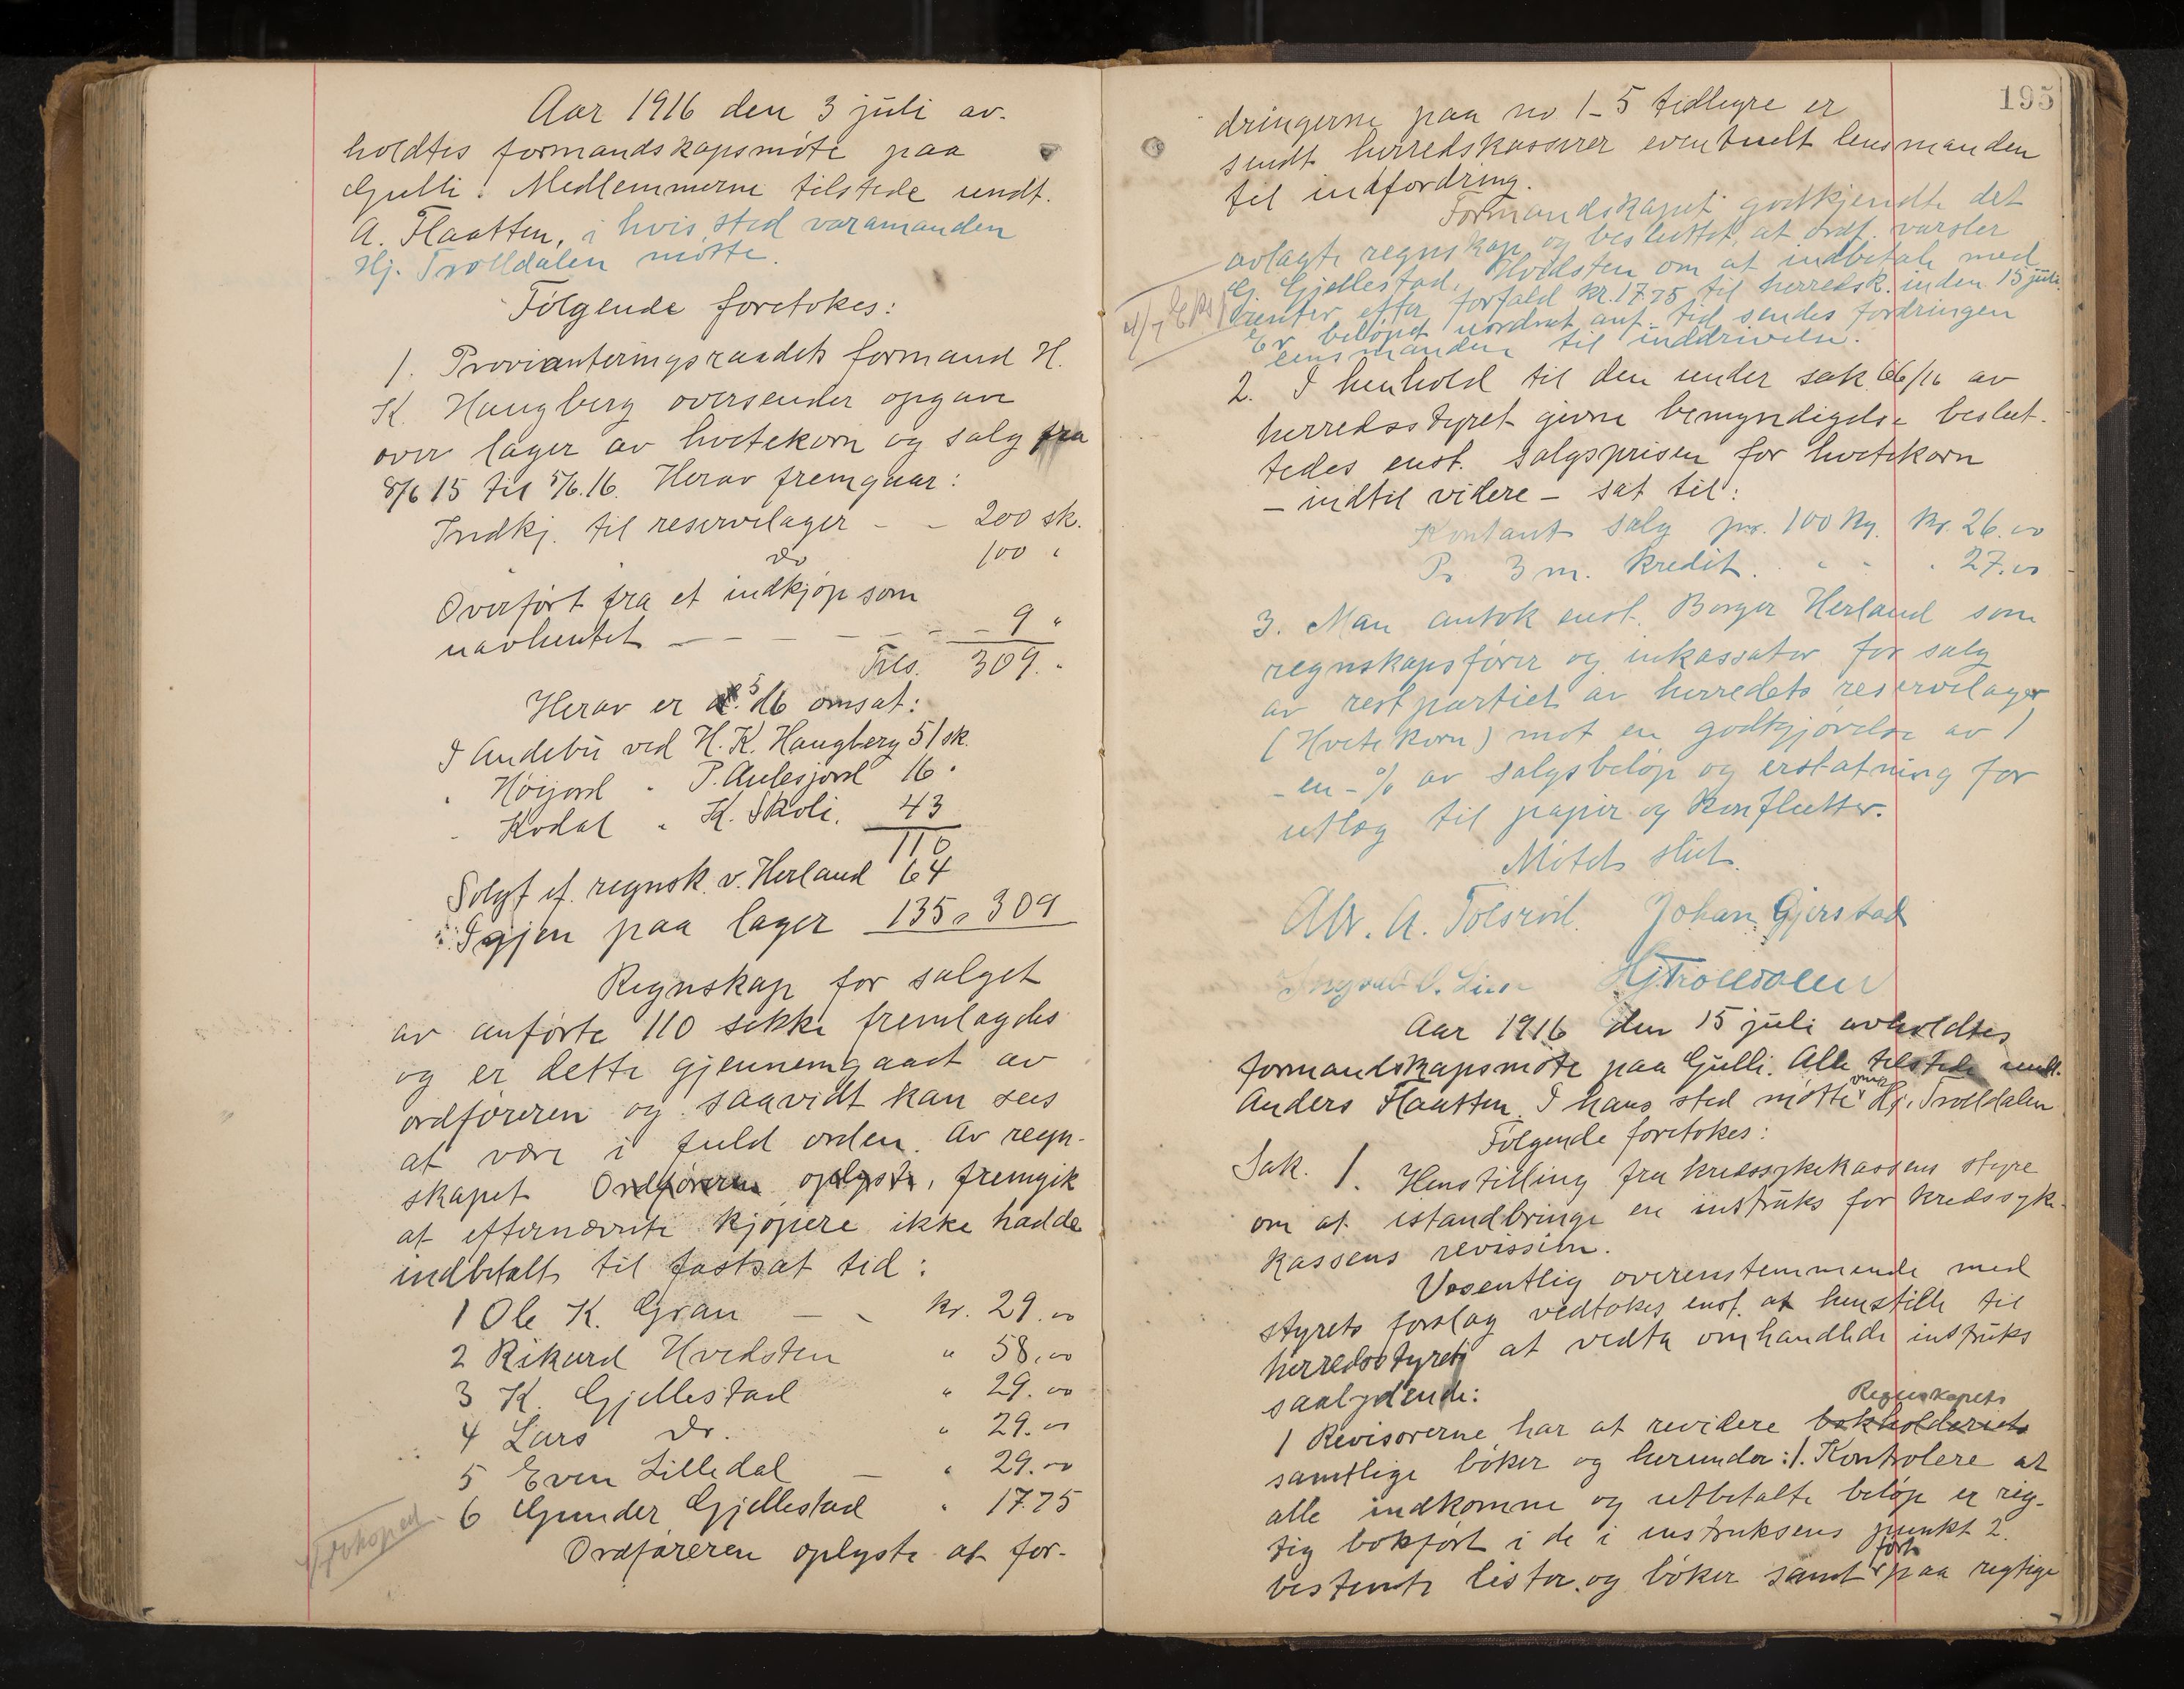 Aar 1916 den 3 juli av-
holdtes formandskapsmöte paa
Gulli. Medlemmerne tilstede undt.
A. Flaatten, i hvis sted varamanden
Hj. Trolldalen mötte.
Følgende foretokes:
1. Provianteringsraadets formand H.
K. Haugberg oversender opgave
over lager av hvetekorn og salg fra
8/6 15 til 5/6.16. Herav fremgaar:
Indkj. til reservelager - - 200 sk.
do 100 "
Overført fra et indkjøp som
uavhentet - - - - - - 9 "
Tils. 309. "
Herav er 5/6 omsat:
I Andebu ved H. K. Haugberg 51 sk.
" Höijord " P. Aulesjord 16 "
" Kodal " K. Skoli. 43
110
Solgt ef. regnsk. v. Herland 64
Igjen paa lager 135 " 309
Regnskap for salget
av anførte 110 sække fremlagdes
og er dette gjennemgaaet av
ordføreren og saavidt kan sees
at være i fuld orden. Av regn-
skapet Ordføreren oplyste, fremgik
at efternævnte kjøpere ikke hadde
indbetalt til fastsat tid:
1 Ole K. Gran - - kr. 29.00
2 Rikard Hvedsten " 58.00
3 K. Gjellestad " 29.00
4 Lars do. " 29.00
5 Even Lilledal - " 29.00
6 Gunder Gjellestad " 17.75
Ordføreren oplyste at for-
195
dringerne paa no 1-5 tidligre er
sendt herredskasserer eventuelt lensmanden
til indfordring.
Formandskapet godkjendte det
avlagte regnskap og besluttet, at ordf. varsler
G. Gjellestad, Hvidsten om at indbetale med
renter efter forfald kr. 17.75 til herredsk. inden 15 juli.
Er beløpet uordnet anf. tid sendes fordringen
lensmanden til inddrivelse.
2. I henhold til den under sak 66/16 av
herredsstyret givne bemyndigelse beslut-
tedes enst. salgsprisen for hvetekorn
- indtil videre - sat til:
Kontant salg pr. 100 kg. kr. 26.00
Pr 3 m. kredit. " " " 27.00
3. Man antok enst. Borger Herland som
regnskapsfører og inkassator for salg
av restpartiet av herredets reservelager
(Hvetekorn) mot en godtgjørelse av 1
- en - % av salgsbeløp og erstatning for
utlæg til papir og konflutter.
Mötet slut.
Alv. A. Tolsröd. Johan Gjerstad
Ingvald O. Lien Hj Trolldalen
Aar 1916 den 15 juli avholdtes
formandskapsmöte paa Gulli. Alle tilstede undt.
Anders Flaatten. I hans sted mötte vmd Hj. Trolldalen
Følgende foretokes:
Sak. 1. Henstilling fra kredssykekassens styre
om at istandbringe en instruks for kredssyke-
kassens revission.
Væsentlig overenstemmende med
styrets forslag vedtokes enst. at henstille til
herredsstyret at vedta omhandlede instruks
saalydende:
Regnskapets
1 Revisorerne har at revidere bokholderiets
samtlige böker og herunder: 1. Kontrolere at
alle indkomne og utbetalte beløp er rig-
tig bokført i de i instruksens punkt 2.
bestemte lister og böker samt ført paa rigtige